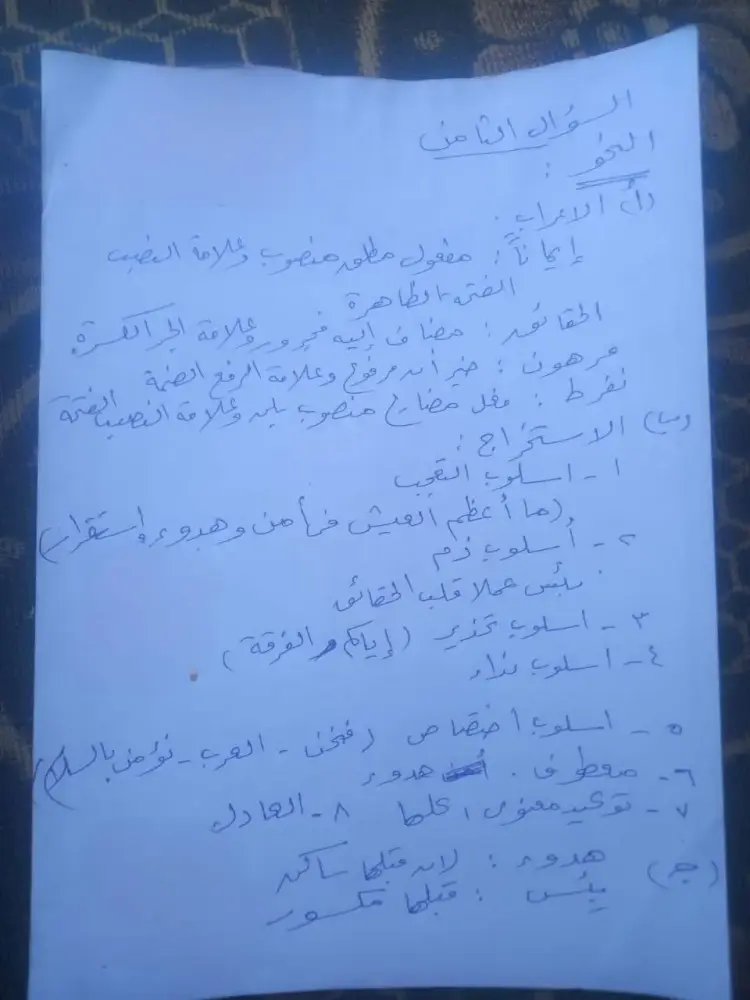 السؤال الثامن
النحو :
(أ) الاعراب :
إيماناً : مفعول مطلق منصوب وعلامة النصب
الفتحة الظاهرة
الحقائق : مضاف إليه مجرور وعلامة الجر الكسرة
مرهون : خبر أن مرفوع وعلامة الرفع الضمة
نفرط : فعل مضارع منصوب بلن وعلامة النصب الفتحة
(ب) الاستخراج :
١ - اسلوب التعجب
(ما أعظم العيش في أمن وهدوء واستقرار)
٢ - أسلوب ذم
بئس عملا قلب الحقائق
٣ - اسلوب تحذير (إياكم والفرقة)
٤ - اسلوب نداء
٥ - اسلوب اختصاص (فنحن - العرب - نؤمن بالسلام)
٦ - معطوف . هدوء
٧ - توكيد معنوى ، كلها ٨ - العادل
(جـ) هدوء : لان قبلها ساكن
بئس : قبلها مكسور